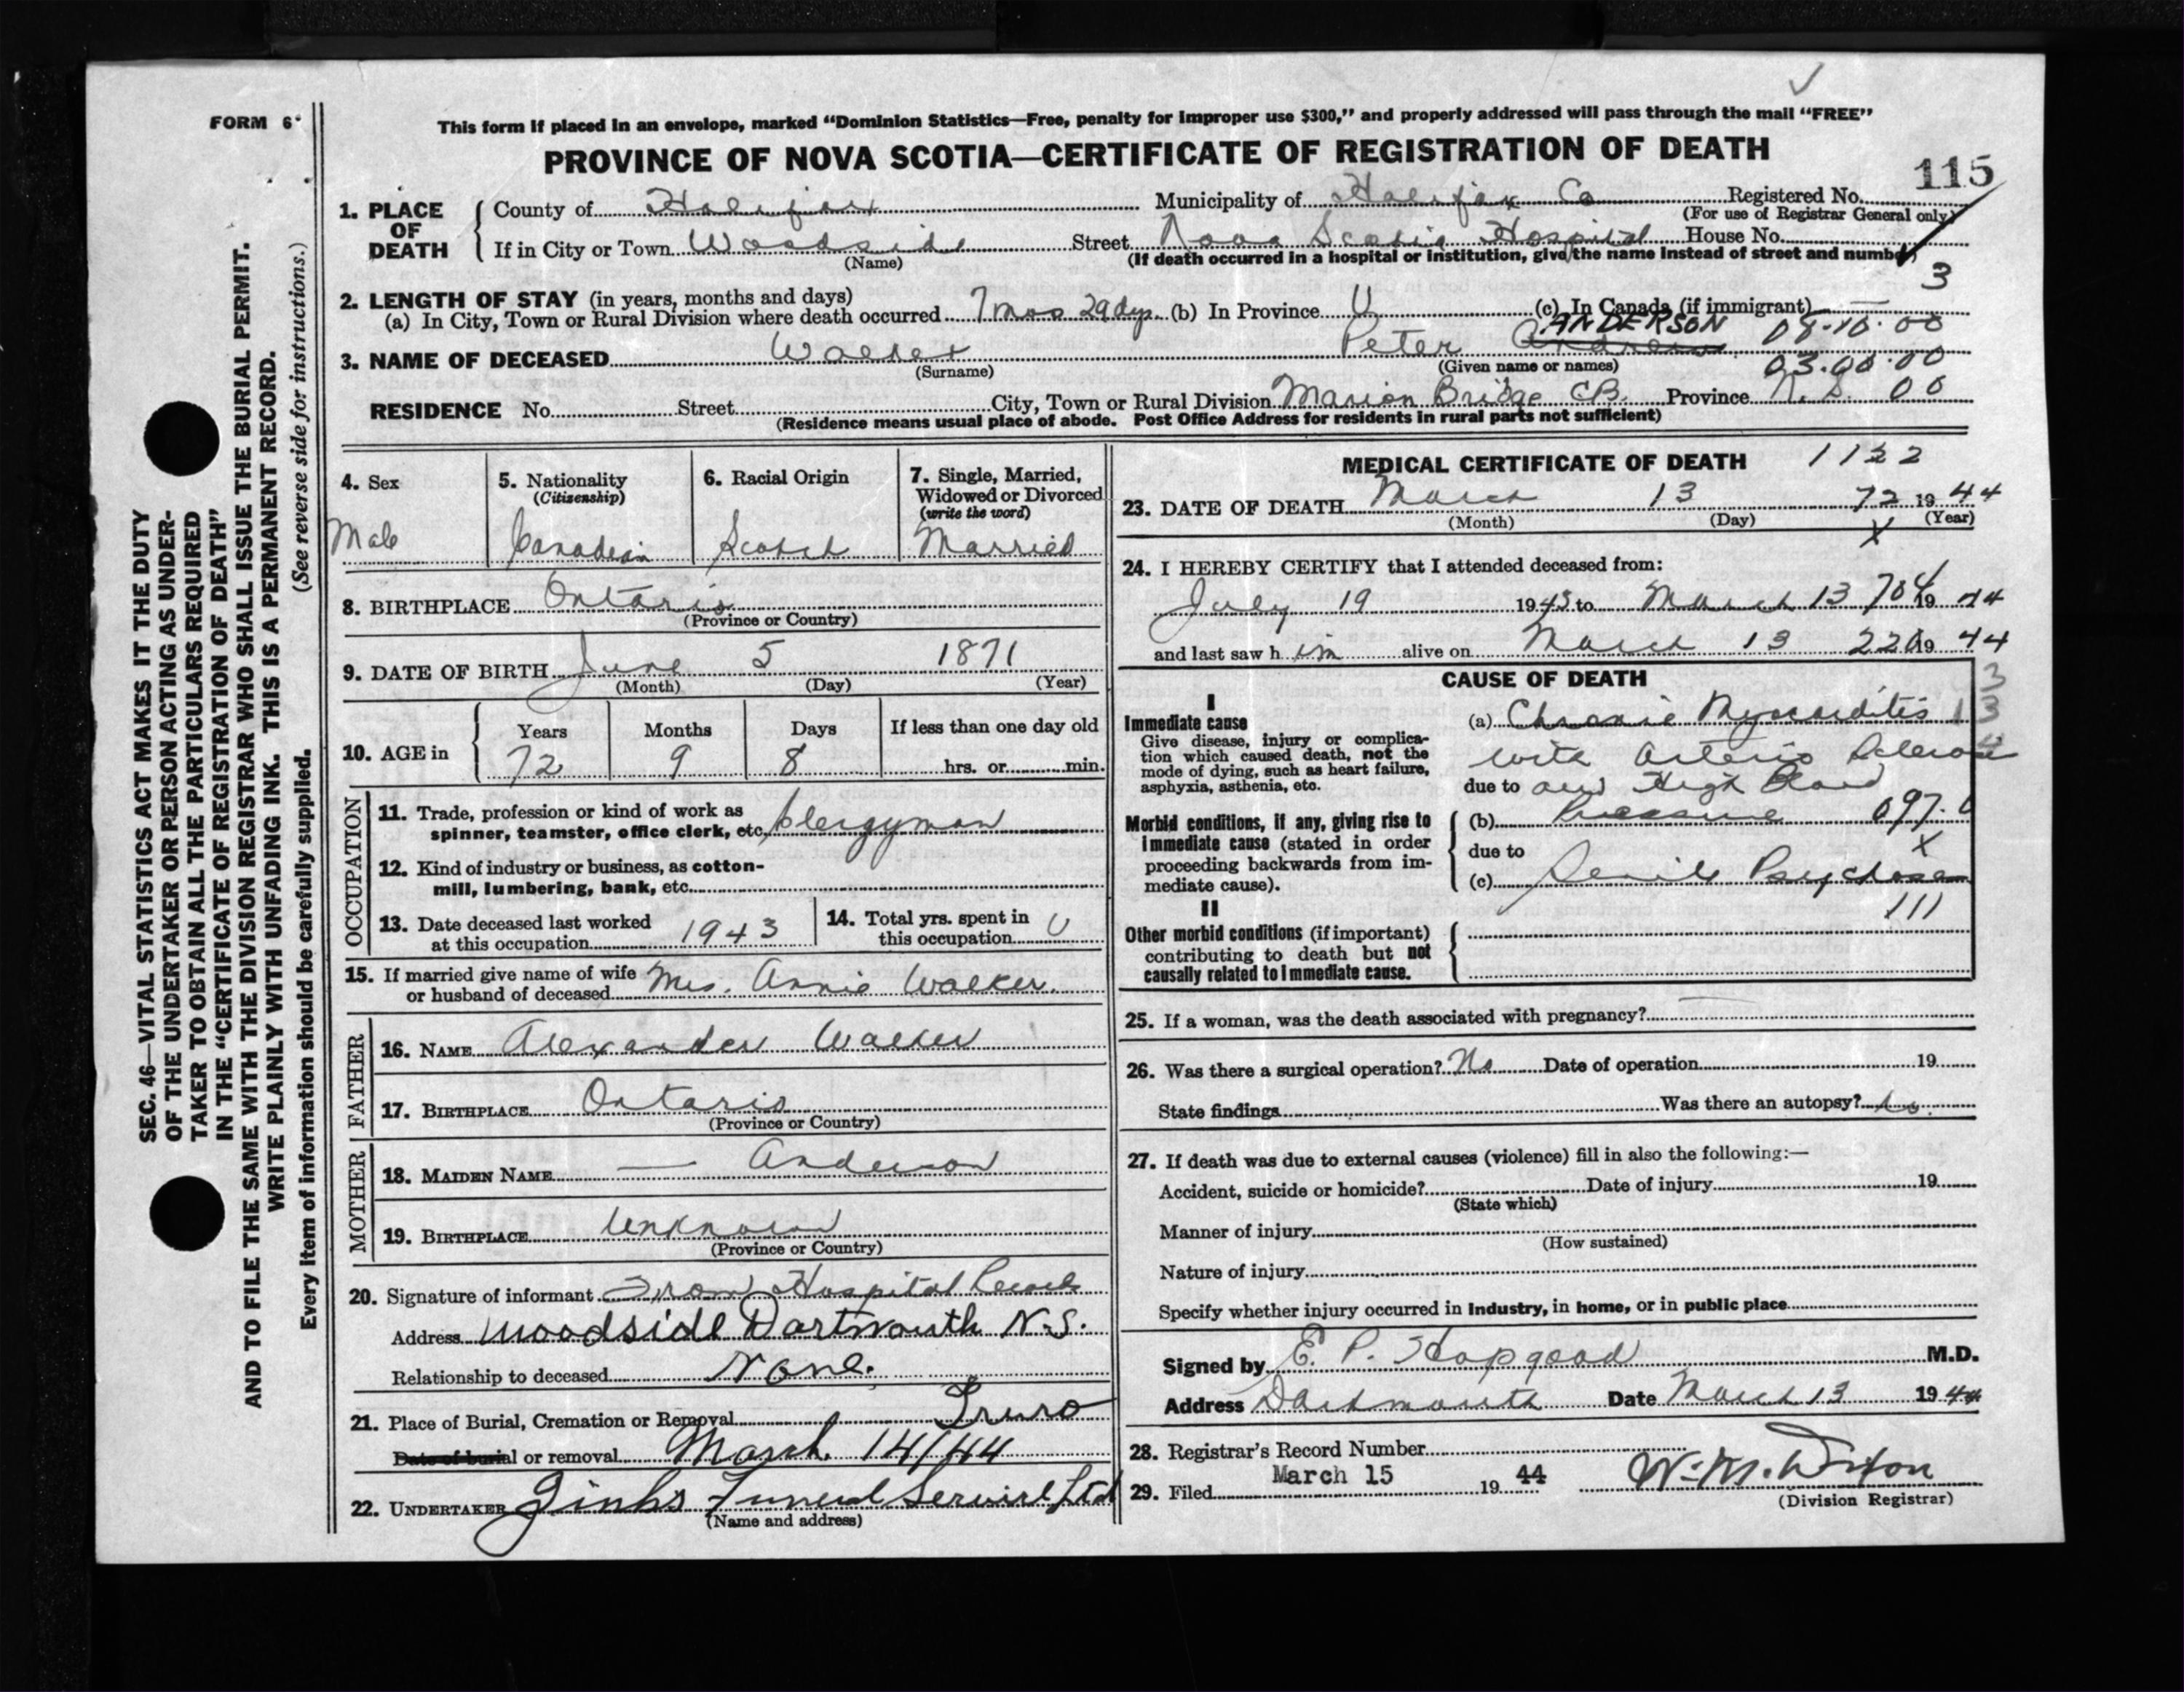 FORM 6
This form if placed in an envelope, marked “Dominion Statistics—Free, penalty for improper use $300,” and properly addressed will pass through the mail “FREE”
PROVINCE OF NOVA SCOTIA—CERTIFICATE OF REGISTRATION OF DEATH
115
1. PLACE OF DEATH
County of Halifax Municipality of Halifax Co Registered No.
(For use of Registrar General only)
If in City or Town Woodside Street Nova Scotia Hospital House No.
(Name) (If death occurred in a hospital or institution, give the name instead of street and number)
3
2. LENGTH OF STAY (in years, months and days)
(a) In City, Town or Rural Division where death occurred 7 mos 29 dys. (b) In Province U (c) In Canada (if immigrant) —
ANDERSON 08-10-00
3. NAME OF DECEASED Walker Peter Andrew
(Surname) (Given name or names) 03.00.00
RESIDENCE No. Street City, Town or Rural Division Marion Bridge CB. Province N.S. 00
(Residence means usual place of abode. Post Office Address for residents in rural parts not sufficient)
4. Sex
Male
5. Nationality
(Citizenship)
Canadian
6. Racial Origin
Scotch
7. Single, Married, Widowed or Divorced
(write the word)
Married
8. BIRTHPLACE Ontario
(Province or Country)
9. DATE OF BIRTH June 5 1871
(Month) (Day) (Year)
10. AGE in
Years Months Days If less than one day old
72 9 8 hrs. or min.
OCCUPATION
11. Trade, profession or kind of work as spinner, teamster, office clerk, etc. Clergyman
12. Kind of industry or business, as cotton-
mill, lumbering, bank, etc.
13. Date deceased last worked
at this occupation 1943
14. Total yrs. spent in
this occupation U
15. If married give name of wife
or husband of deceased Mrs. Annie Walker.
FATHER
16. NAME Alexander Walker
17. BIRTHPLACE Ontario
(Province or Country)
MOTHER
18. MAIDEN NAME — Anderson
19. BIRTHPLACE Unknown
(Province or Country)
20. Signature of informant From Hospital Records
Address Woodside Dartmouth N.S.
Relationship to deceased None.
21. Place of Burial, Cremation or Removal Truro
Date of burial or removal March 14/44
22. UNDERTAKER Funeral Service Ltd
(Name and address)
MEDICAL CERTIFICATE OF DEATH 1122
23. DATE OF DEATH March 13 72 1944
(Month) (Day) (Year)
X
24. I HEREBY CERTIFY that I attended deceased from:
July 19 1943 to March 13 1944
and last saw him alive on March 13 1944
CAUSE OF DEATH
I
Immediate cause
Give disease, injury or complica-
tion which caused death, not the
mode of dying, such as heart failure,
asphyxia, asthenia, etc.
(a) Chronic Myocarditis
with Arterio Sclerosis
due to and High Blood
Morbid conditions, if any, giving rise to
immediate cause (stated in order
proceeding backwards from im-
mediate cause).
(b) Pressure 097.0
due to X
(c) Senile Psychoses
111
II
Other morbid conditions (if important)
contributing to death but not
causally related to immediate cause.
25. If a woman, was the death associated with pregnancy?
26. Was there a surgical operation? No Date of operation 19
State findings Was there an autopsy? No.
27. If death was due to external causes (violence) fill in also the following:—
Accident, suicide or homicide? Date of injury 19
(State which)
Manner of injury
(How sustained)
Nature of injury
Specify whether injury occurred in industry, in home, or in public place
Signed by E. P. Hopgood M.D.
Address Dartmouth Date March 13 1944
28. Registrar's Record Number
29. Filed March 15 19 44
(Division Registrar)
SEC. 46—VITAL STATISTICS ACT MAKES IT THE DUTY
OF THE UNDERTAKER OR PERSON ACTING AS UNDER-
TAKER TO OBTAIN ALL THE PARTICULARS REQUIRED
IN THE “CERTIFICATE OF REGISTRATION OF DEATH”
AND TO FILE THE SAME WITH THE DIVISION REGISTRAR WHO SHALL ISSUE THE BURIAL PERMIT.
WRITE PLAINLY WITH UNFADING INK. THIS IS A PERMANENT RECORD.
Every item of information should be carefully supplied. (See reverse side for instructions.)